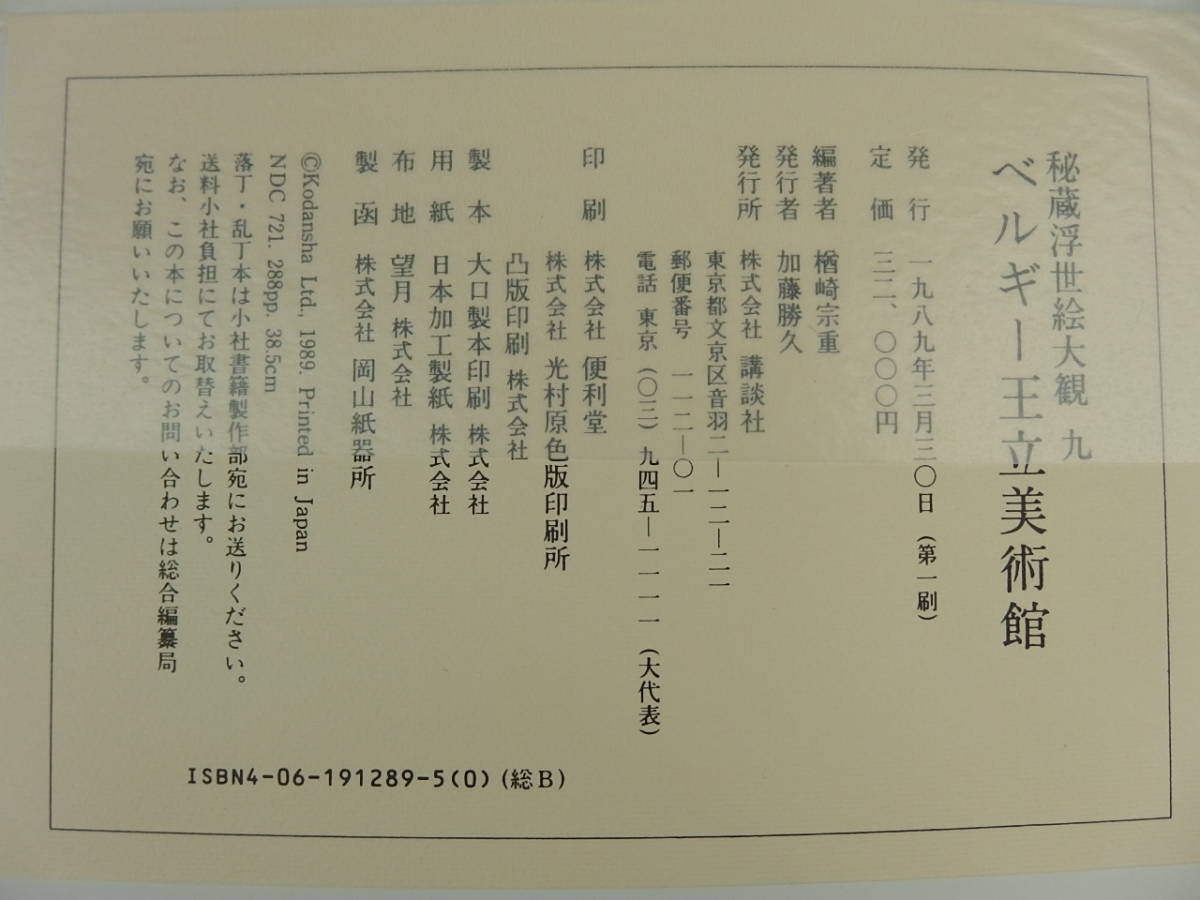 秘蔵浮世絵大観 九
ベルギー王立美術館
発行 一九八九年三月三〇日（第一刷）
定価 三二、〇〇〇円
編著者 楢崎宗重
発行者 加藤勝久
発行所 株式会社 講談社
東京都文京区音羽二―一二―二一
郵便番号 一一二―〇一
電話 東京（〇三）九四五―一一一一（大代表）
印刷 株式会社 便利堂
株式会社 光村原色版印刷所
凸版印刷 株式会社
製本 大口製本印刷 株式会社
用紙 日本加工製紙 株式会社
布地 望月 株式会社
製函 株式会社 岡山紙器所
©Kodansha Ltd., 1989. Printed in Japan
NDC 721. 288pp. 38.5cm
落丁・乱丁本は小社書籍製作部宛にお送りください。
送料小社負担にてお取替えいたします。
なお、この本についてのお問い合わせは総合編纂局
宛にお願いいたします。
ISBN4-06-191289-5(0)（総B）